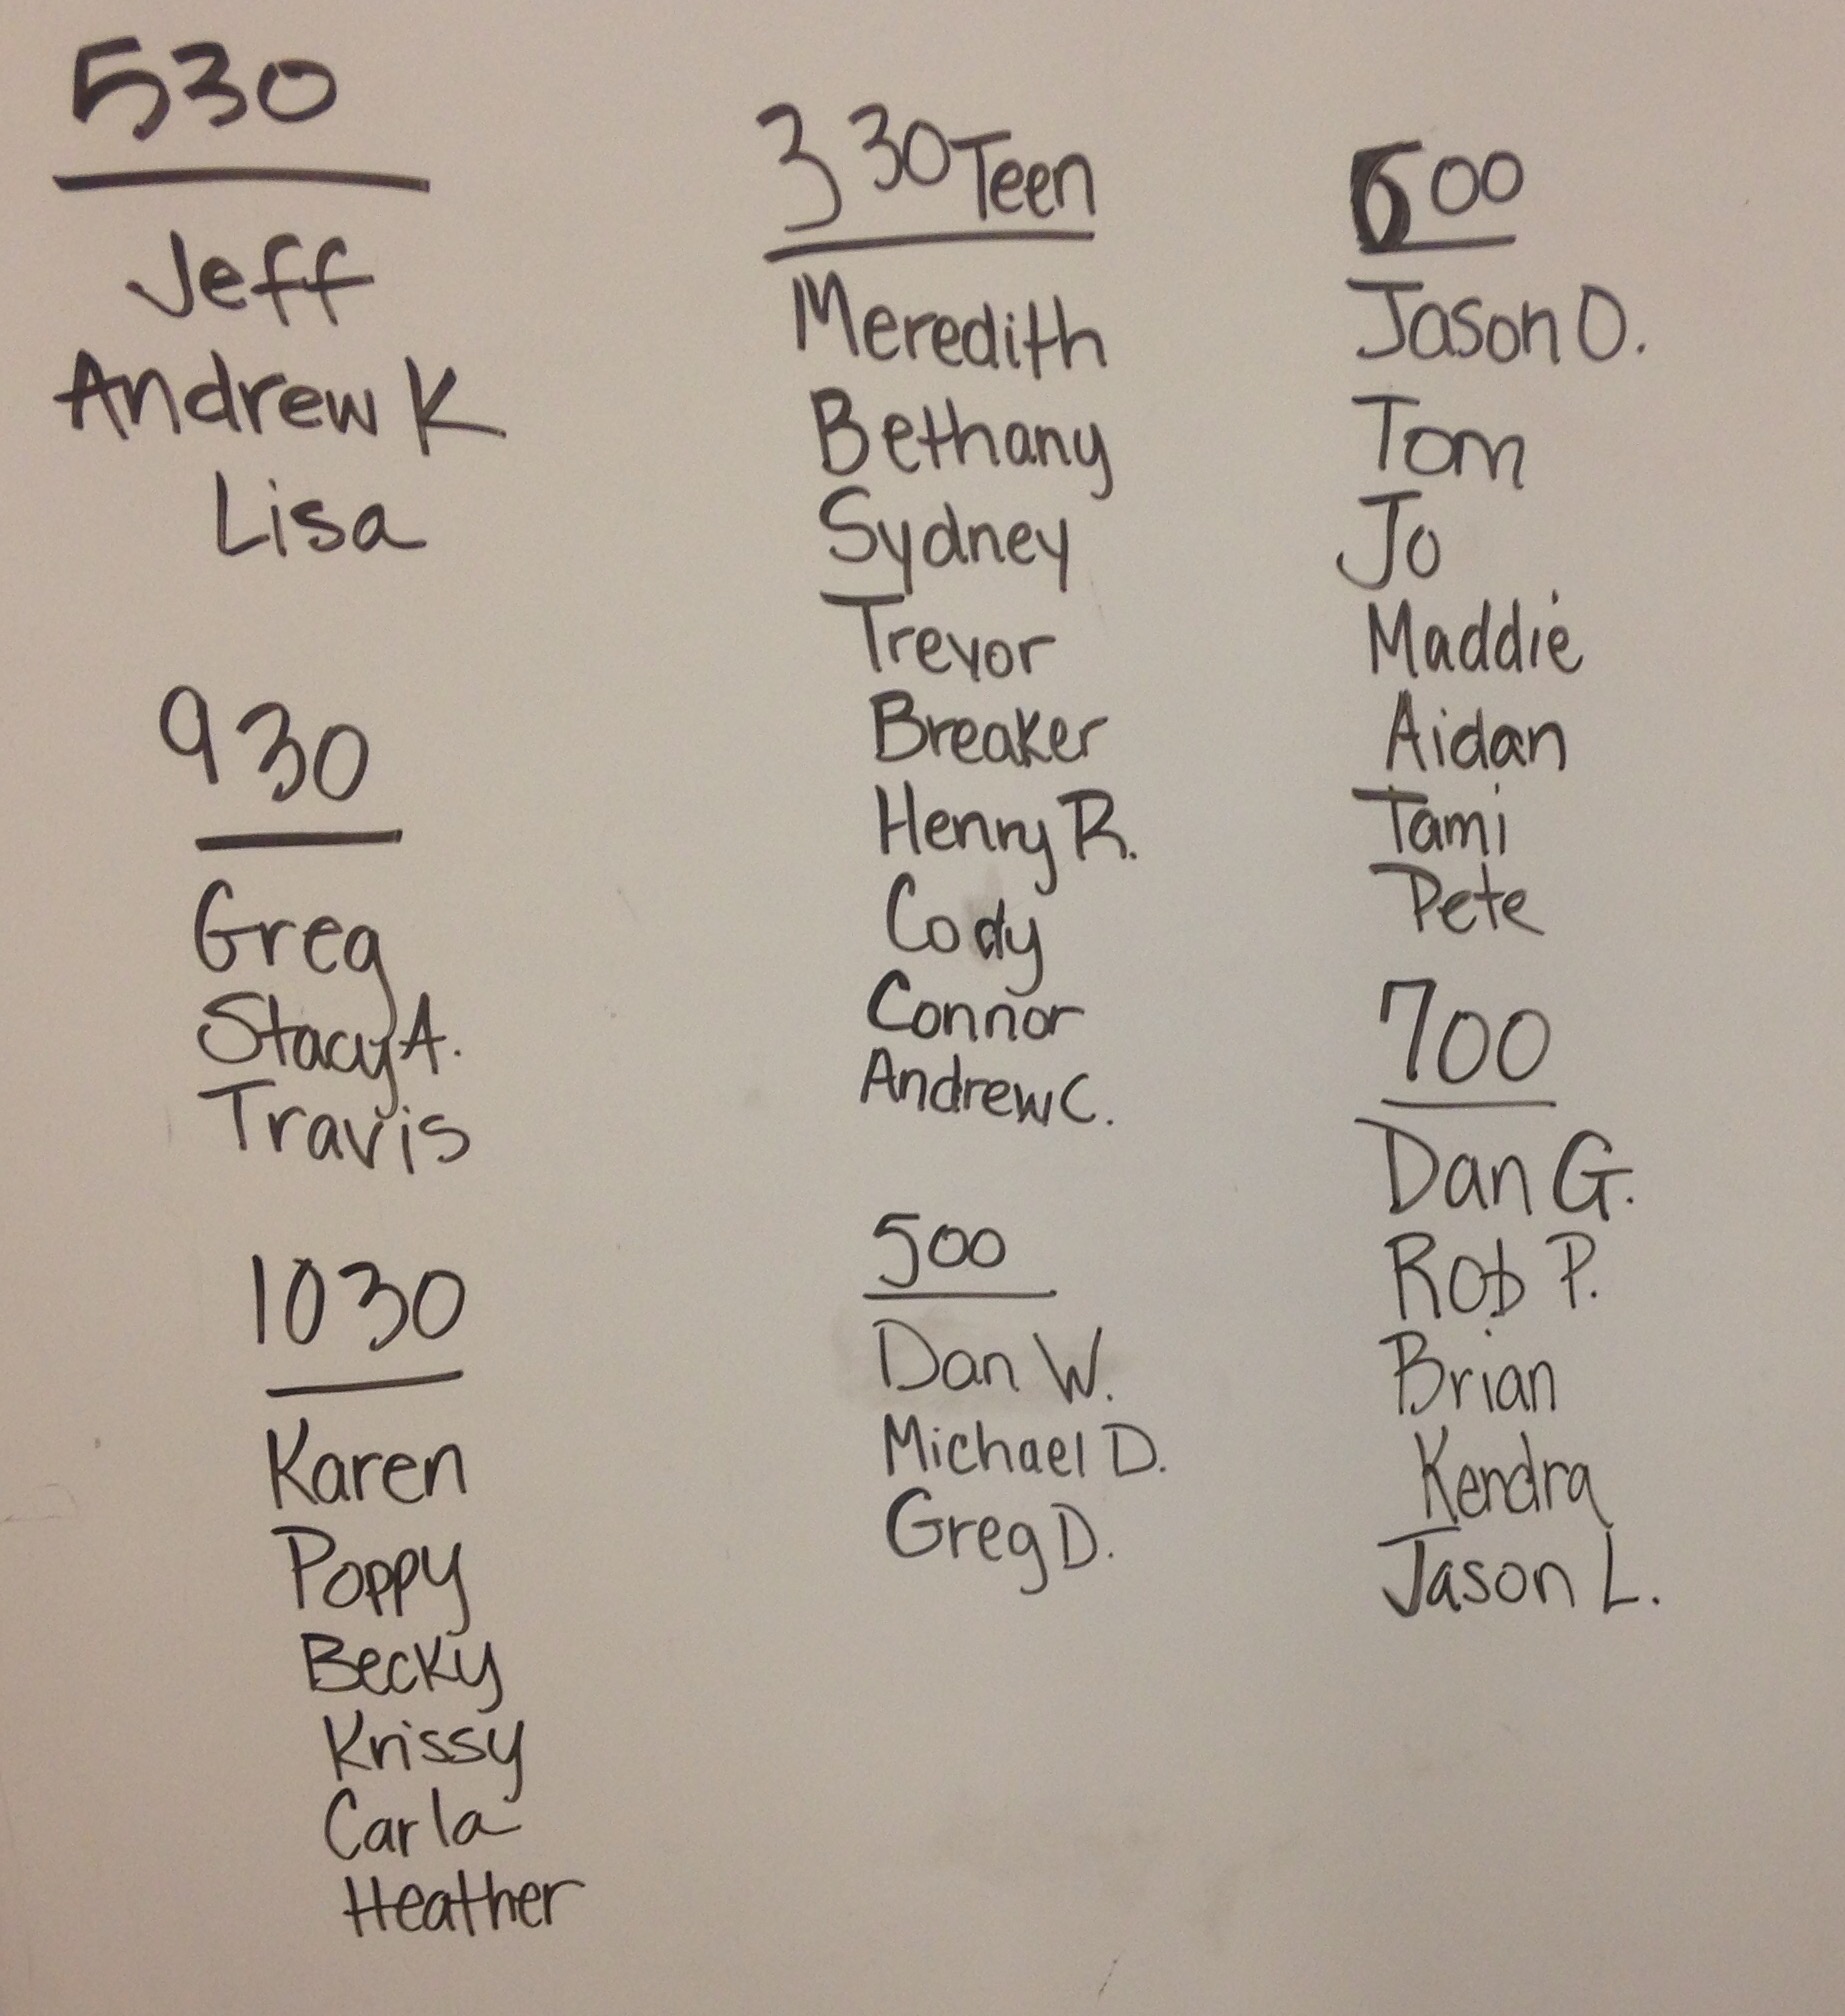 530
Jeff
Andrew K
Lisa
930
Greg
Stacy A.
Travis
1030
Karen
Poppy
Becky
Krissy
Carla
Heather
330 Teen
Meredith
Bethany
Sydney
Trevor
Breaker
Henry R.
Cody
Connor
Andrew C.
500
Dan W.
Michael D.
Greg D.
600
Jason O.
Tom
Jo
Maddie
Aidan
Tami
Pete
700
Dan G.
Rob P.
Brian
Kendra
Jason L.